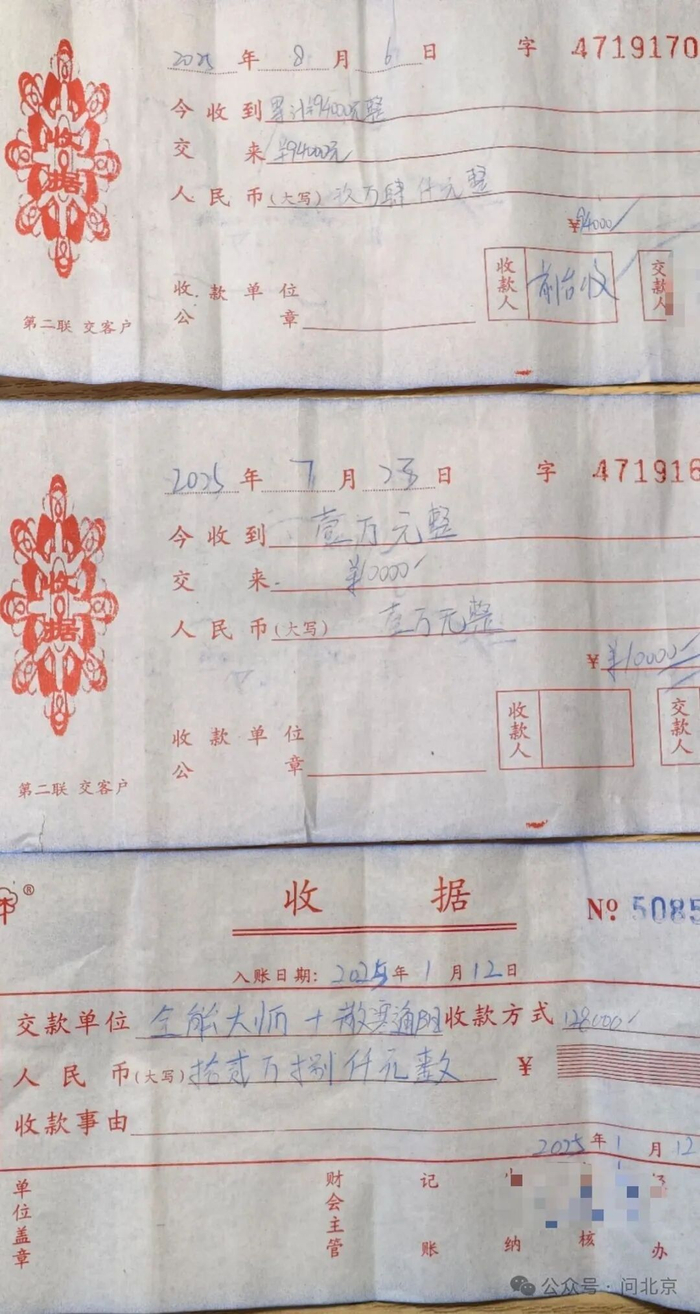 2025 年 8 月 6 日 字 4719170
今收到 累计¥94000元整
交来 ¥94000元
人民币(大写) 玖万肆仟元整
¥94000
收据
收款单位
公章
收款人
交款人
第二联 交客户
2025 年 7 月 23 日 字 471916
今收到 壹万元整
交来 ¥10000
人民币(大写) 壹万元整
¥10000
收据
收款单位
公章
收款人
交款人
第二联 交客户
®
收据 № 5085
入账日期: 2025年 1 月 12 日
交款单位 全能大师+ 收款方式 128000
人民币(大写) 拾贰万捌仟元 ¥
收款事由
2025年 1 月 12
单位盖章
财会主管
记账
纳
核
办
公众号·问北京